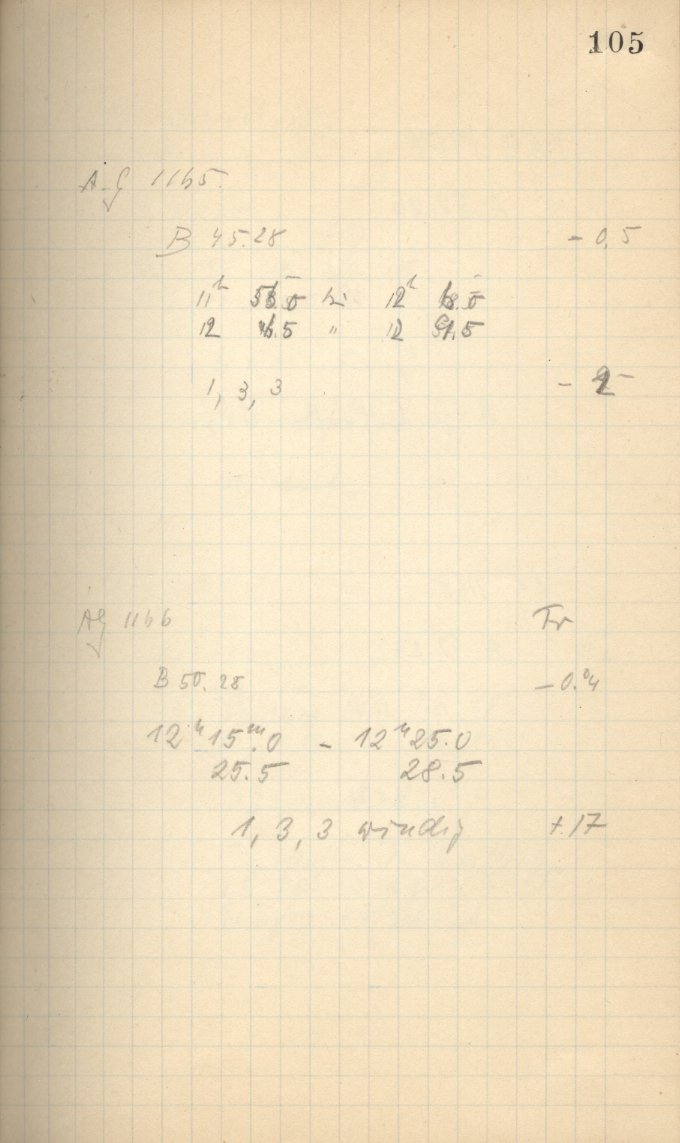 105
AG 1165
B 45.28 - 0,5
11h 5 .5 bis 12h 8.5
12 .5 " 12 51.5
1, 3, 3 -
AG 1166 Tr
B 50.28 - 0.°4
12h 15m.0 - 12h 25.0
25.5 28.5
1, 3, 3 windig +.17